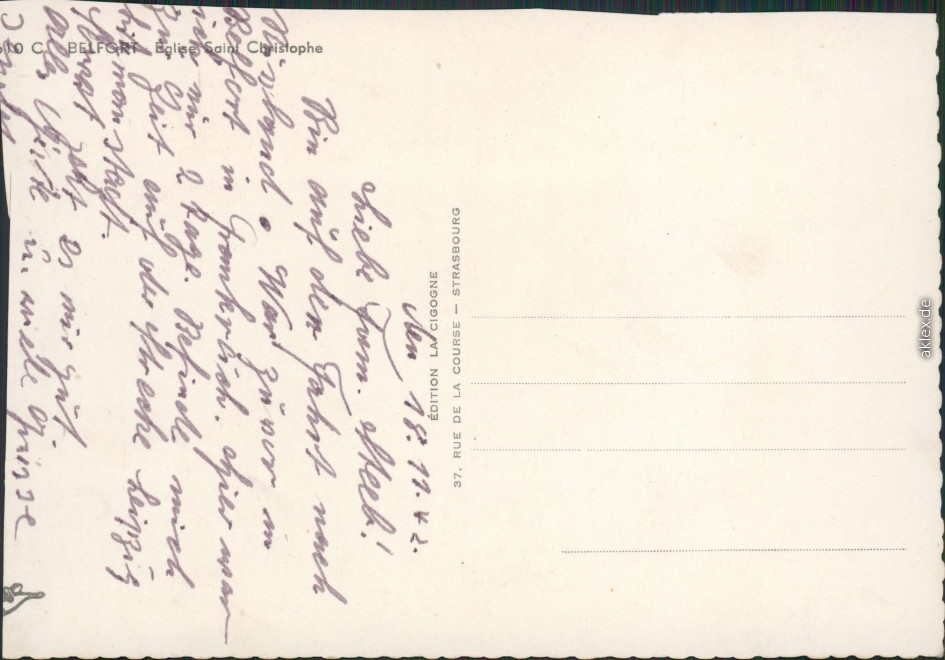 610 C - BELFORT - Eglise Saint Christophe
ÉDITION LA CIGOGNE
37, RUE DE LA COURSE — STRASBOURG
den 18. 11. 42.
Liebe Fam.
Bin auf der Fahrt nach
Rußland. War zuvor in
Belfort in Frankreich. Hier war
ich nur 2 Tage. Befinde mich
zur Zeit auf der Strecke Leipzig
geht es mir gut
viele Grüße
aklex.de